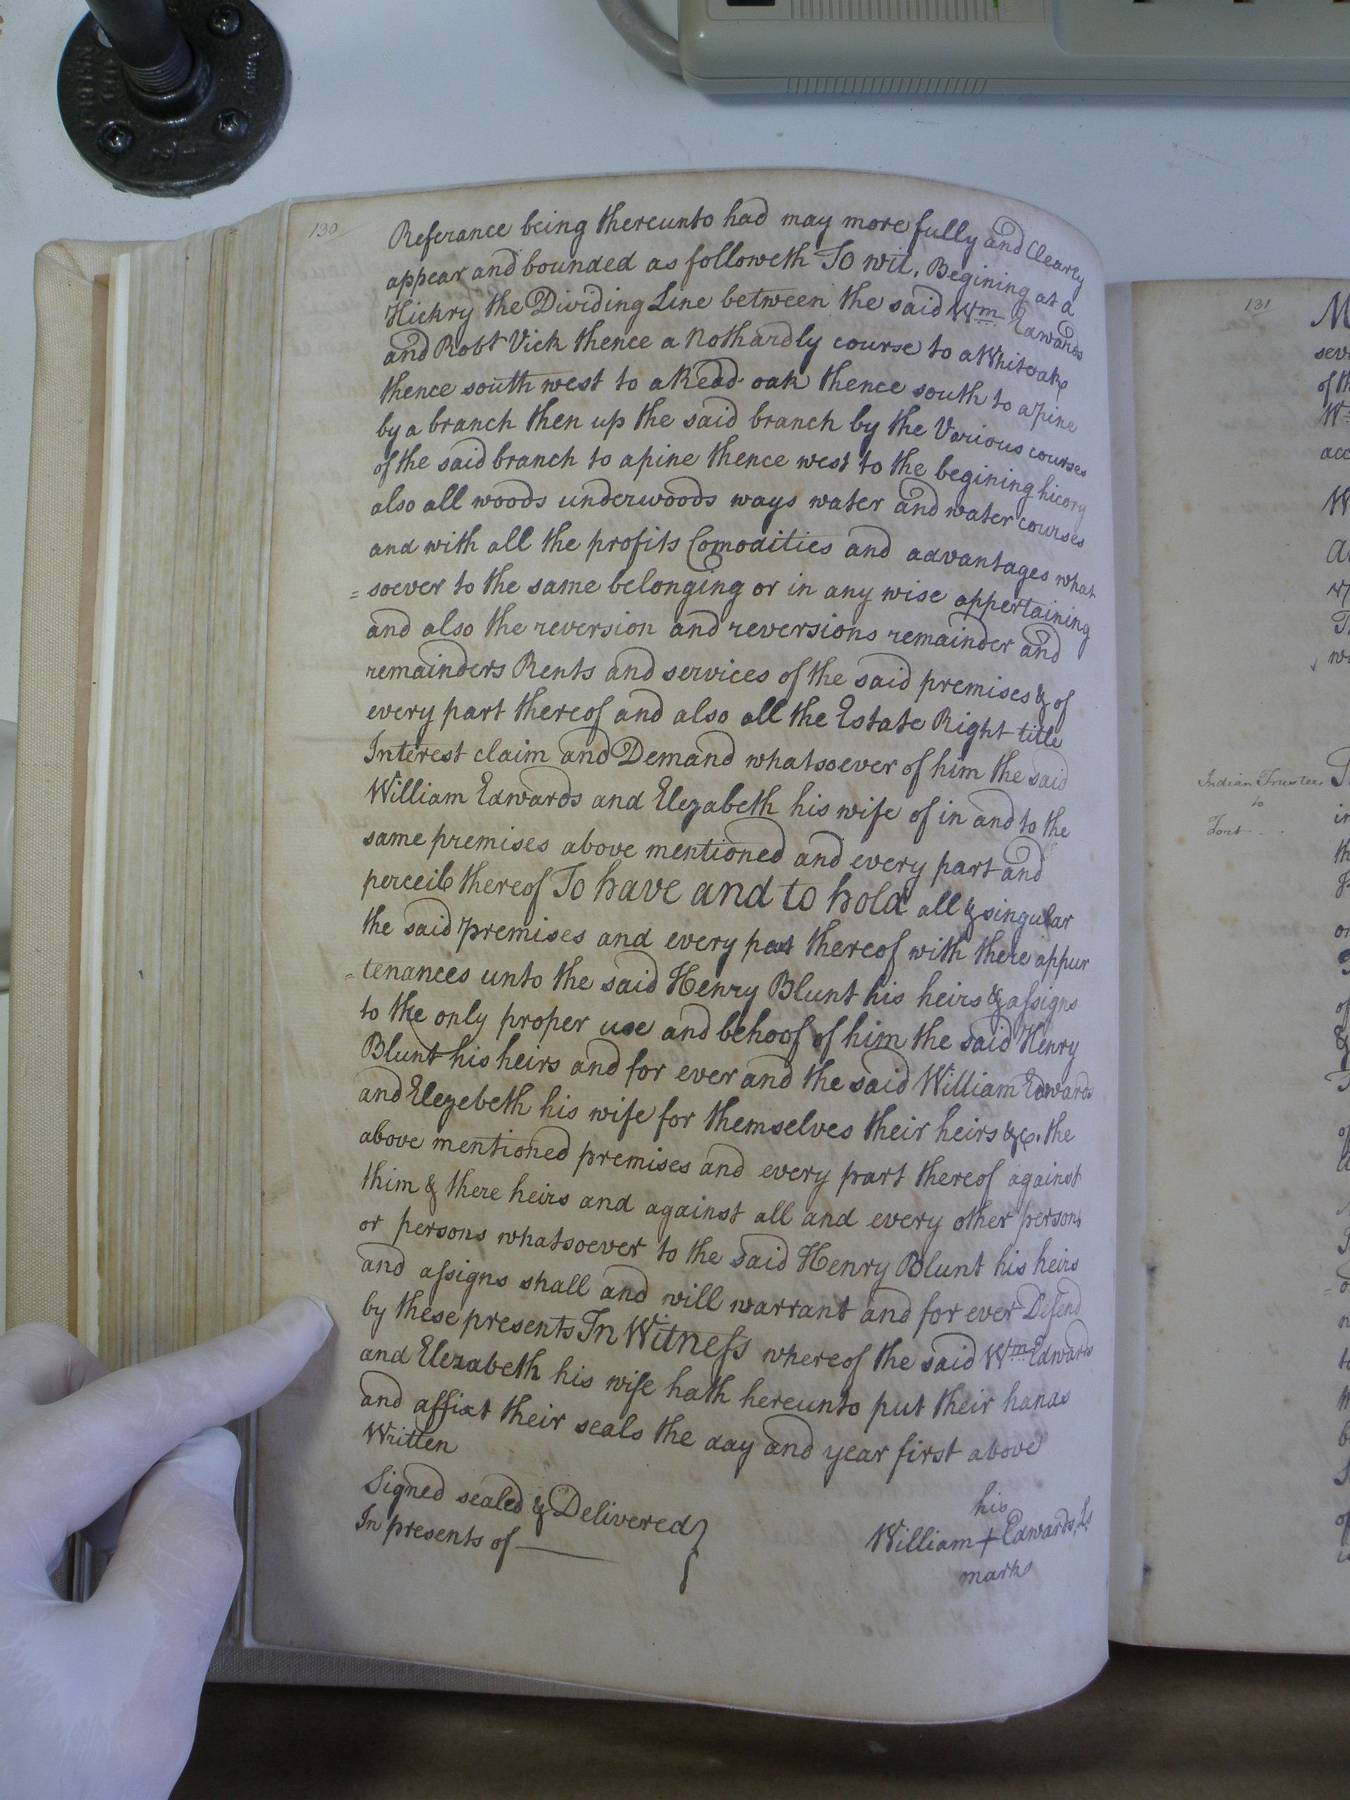 130
Referance being thereunto had may more fully and Clearly
appear and bounded as followeth To wit, Begining at a
Hickry the Dividing Line between the said Wm Edwards
and Robt Vick thence a Nothardly course to a Whiteoak
thence south west to a Read oak thence south to a pine
by a branch then up the said branch by the Various courses
of the said branch to a pine thence west to the begining hicory
also all woods underwoods ways water and water courses
and with all the profits Comodities and advantages what
= soever to the same belonging or in any wise appertaining
and also the reversion and reversions remainder and
remainders Rents and services of the said premises & of
every part thereof and also all the Estate Right title
Interest claim and Demand whatsoever of him the said
William Edwards and Elezabeth his wife of in and to the
same premises above mentioned and every part and
perceil thereof To have and to hold all & singular
the said premises and every part thereof with there appur
= tenances unto the said Henry Blunt his heirs & assigns
to the only proper use and behoof of him the said Henry
Blunt his heirs and for ever and the said William Edwards
and Elezebeth his wife for themselves their heirs &c. the
above mentioned premises and every part thereof against
thim & there heirs and against all and every other person
or persons whatsoever to the said Henry Blunt his heirs
and assigns shall and will warrant and for ever Defend
by these presents In Witness whereof the said Wm Edwards
and Elezabeth his wife hath hereunto put their hands
and affixt their seals the day and year first above
Written
Signed sealed & Delivered
In presents of
his
William + Edwards, Ls
mark
131
Indian Trustees
to
Fort